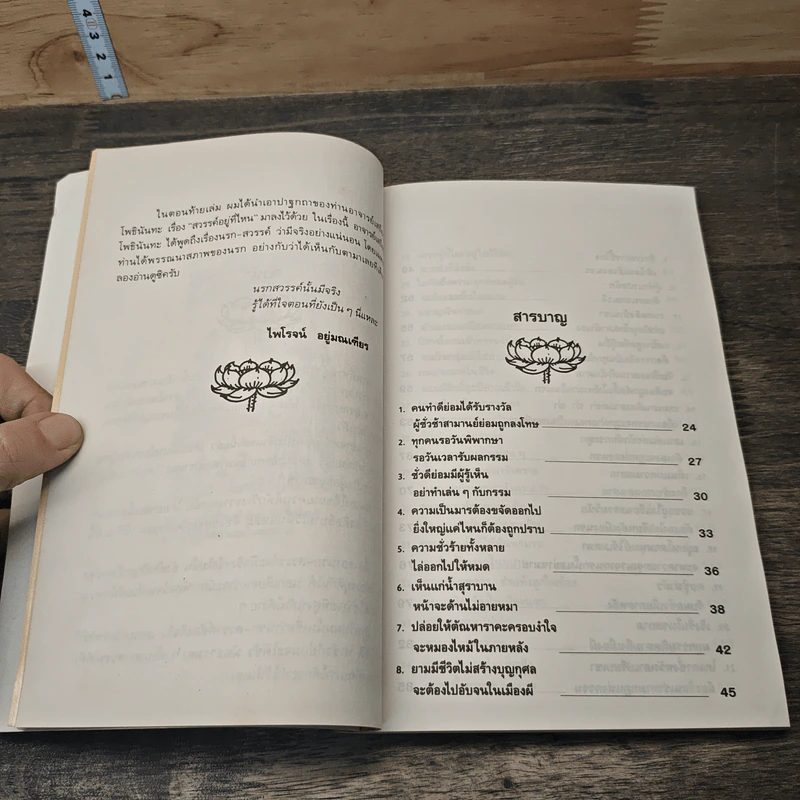 4 3 2 1
ในตอนท้ายเล่ม ผมได้นำเอาปาฐกถาของท่านอาจารย์
โพธินันทะ เรื่อง "สวรรค์อยู่ที่ไหน" มาลงไว้ด้วย ในเรื่องนี้ อาจารย์
โพธินันทะ ได้พูดถึงเรื่องนรก-สวรรค์ ว่ามีจริงอย่างแน่นอน
ท่านได้พรรณนาสภาพของนรก อย่างกับว่าได้เห็นกับตามาเลย
ลองอ่านดูซิครับ
นรกสวรรค์นั้นมีจริง
รู้ได้ที่ใจตอนที่ยังเป็น ๆ นี่แหละ
ไพโรจน์ อยู่มณเฑียร
สารบาญ
1. คนทำดีย่อมได้รับรางวัล
ผู้ชั่วช้าสามานย์ย่อมถูกลงโทษ 24
2. ทุกคนรอวันพิพากษา
รอวันเวลารับผลกรรม 27
3. ชั่วดีย่อมมีผู้รู้เห็น
อย่าทำเล่น ๆ กับกรรม 30
4. ความเป็นมารต้องขจัดออกไป
ยิ่งใหญ่แค่ไหนก็ต้องถูกปราบ 33
5. ความชั่วร้ายทั้งหลาย
ไล่ออกไปให้หมด 36
6. เห็นแก่น้ำสุราบาน
หน้าจะด้านไม่อายหมา 38
7. ปล่อยให้ตัณหาราคะครอบงำใจ
จะหมองไหม้ในภายหลัง 42
8. ยามมีชีวิตไม่สร้างบุญกุศล
จะต้องไปอับจนในเมืองผี 45